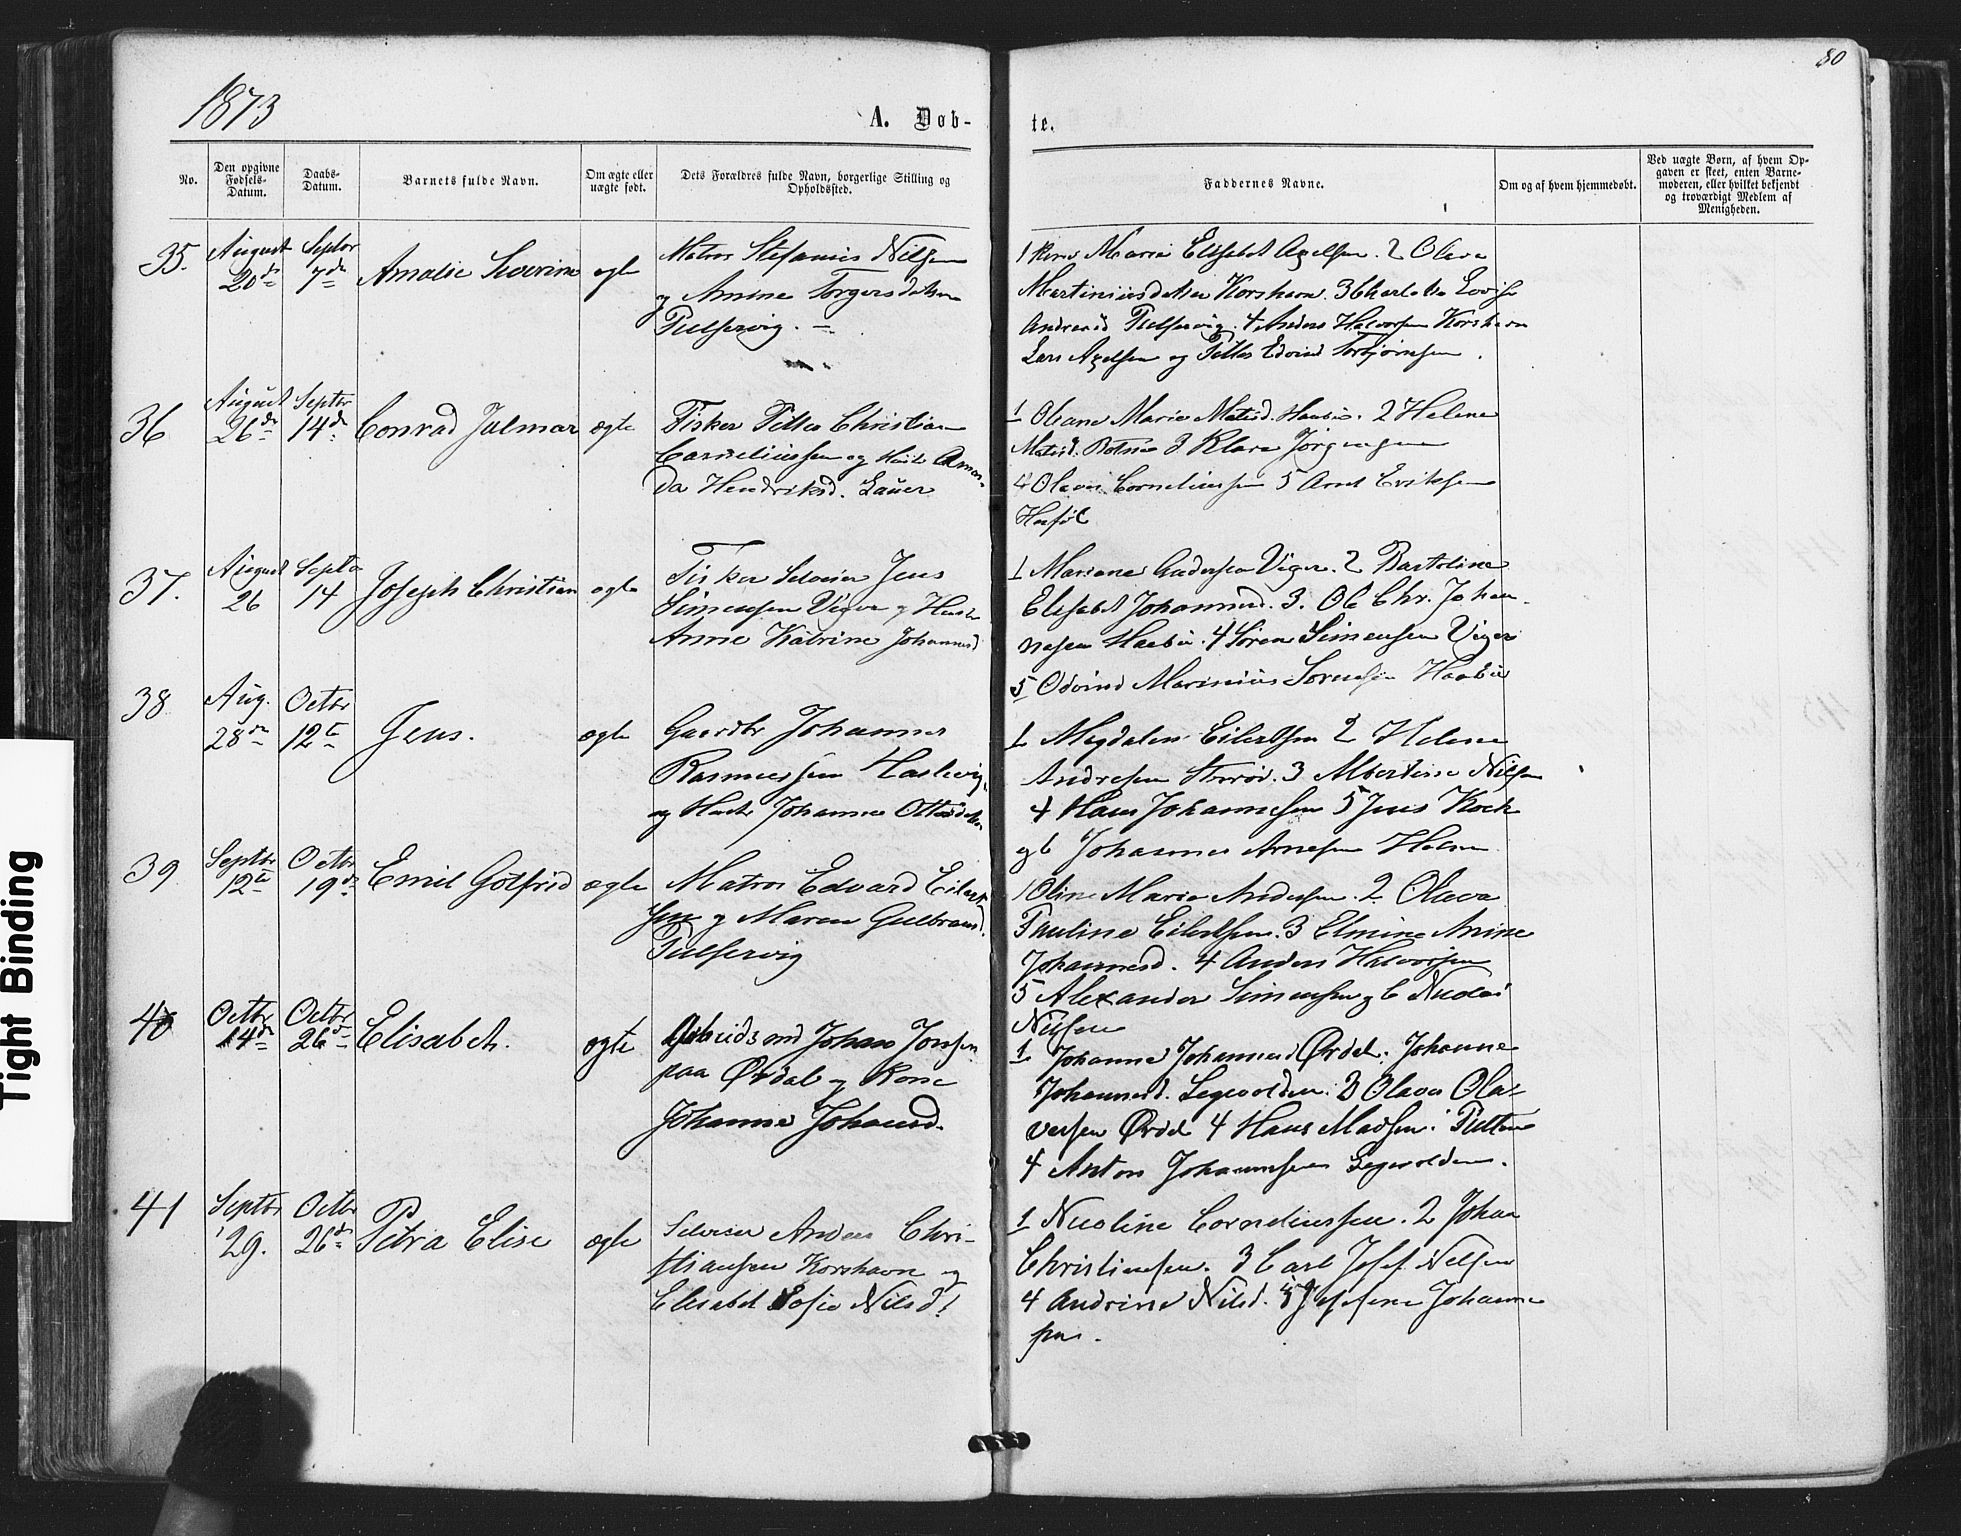 80
1873
A. Døb-
te.
No.
Den opgivne Fødsels-Datum.
Daabs-Datum.
Barnets fulde Navn.
Om ægte eller uægte født.
Dets Forældres fulde Navn, borgerlige Stilling og Opholdssted.
Faddernes Navne.
Om og af hvem hjemmedøbt.
Ved uægte Børn, af hvem Op-
gaven er skeet, enten Barne-
moderen, eller hvilket bekjendt
og troværdigt Medlem af
Menigheden.
35.
August 20de
Septbr 7de
Amalie Severine
ægte
Matros Stefanus Nilsen
og Anine Torgersdatter
Pulservig.
1 Marie Elisabet Axelsen. 2 Olava
Martiniusdatter Korshavn. 3 Charlotte Lovise
Andreasd Pulservig. 4 Anders Halvorsen Korshavn
Lars Axelsen og Petter Edvind Torbjørnsen.
36
August 26de
Septbr 14de
Conrad Jalmar
ægte
Fisker Petter Christian
Corneliussen og Hustr Aman-
da Hendriksd. Lauer
1 Oleane Marie Matisd. Haabu. 2 Helene
Matisd. Botne 3 Klara Jørgensen
4 Olavus Corneliussen 5 Arnt Eriksen
Herføl
37.
August 26
Septbr 14
Joseph Christian
ægte
Fisker Seleier Jens
Simensen Viger og Hustr
Anne Katrine Johannesd
1 Mariane Andersen Viger. 2 Bartoline
Elisabet Johannesd. 3. Ole Chr. Johan-
nesen Haabu. 4 Søren Simensen Viger
5 Edvind Marinius Sørensen Haabu
38
Aug. 28de
Octbr 12te
Jens.
ægte
Gaardbr Johannes
Rasmussen Haslevig
og Hustr Johanne Ottersdatter
1 Magdalene Eilertsen 2 Helene
Andresen Storød. 3 Albertine Nilsen
4 Hans Johannesen 5 Jens Kock
og 6 Johannes Arnesen
39
Septbr 12te
Octbr 19de
Emil Gotfrid
ægte
Matros Edvard Eilert-
sen og Maren Gulbrandsd.
Pulservig
1 Oline Marie Andersen. 2 Olava
Pauline Eilertsen. 3 Elmine Anine
Johannesd. 4 Anders Halvorsen
5 Alexander Simensen og 6 Nicolai
Nilsen
40
Octbr 14de
Octbr 26de
Elisabeth.
ægte
Arbeidsmd Johan Jonsen
paa Ørdal og Kone
Johanne Johansd.
1 Johanne Johannesd Ørdal. Johanne
Johannesd. Segevolden. 3 Olava Ola-
versen Ørdal 4 Hans Madsen
4 Anton Johannesen Segevolden.
41
Septbr 29.
Octbr 26de
Petra Elise
ægte
Seleier Anders Chri-
stiansen Korshavn og
Elisabet Sofie Nilsd.
1 Nicoline Corneliussen. 2 Johan
Christiansen. 3 Carl Josef Nilsen
4 Andrine Nilsd. 5 Josefine Johanne-
sen.
Tight Binding